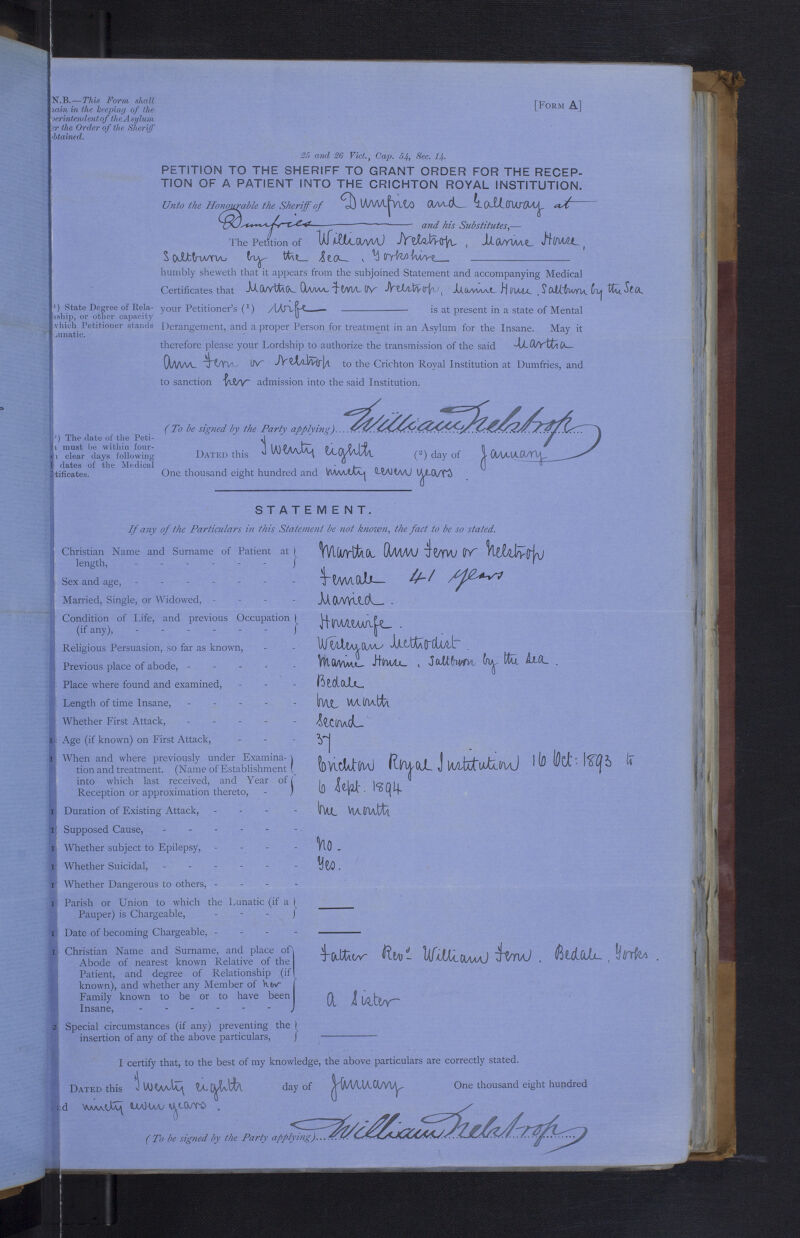 N.B.—This Form shall
ain in the keeping of the
erintendent of the Asylum
er the Order of the Sheriff
btained.
[FORM A]
25 and 26 Vict., Cap. 54, Sec. 14.
PETITION TO THE SHERIFF TO GRANT ORDER FOR THE RECEP-
TION OF A PATIENT INTO THE CRICHTON ROYAL INSTITUTION.
Unto the Honourable the Sheriff of Dumfries and Galloway at
Dumfries and his Substitutes,—
The Petition of William Nelstrop, Marine House,
Saltburn by the Sea, Yorkshire
humbly sheweth that it appears from the subjoined Statement and accompanying Medical
Certificates that Martha Ann Fern or Nelstrop, Marine House, Saltburn by the Sea
(1) State Degree of Rela-
ship, or other capacity
which Petitioner stands
Lunatic.
your Petitioner's (1) Wife is at present in a state of Mental
Derangement, and a proper Person for treatment in an Asylum for the Insane. May it
therefore please your Lordship to authorize the transmission of the said Martha
Ann Fern or Nelstrop to the Crichton Royal Institution at Dumfries, and
to sanction her admission into the said Institution.
(To be signed by the Party applying) William Nelstrop
(2) The date of the Peti-
n must be within four-
n clear days following
dates of the Medical
tificates.
DATED this Twenty eighth (2) day of January
One thousand eight hundred and ninety seven years.
STATEMENT.
If any of the Particulars in this Statement be not known, the fact to be so stated.
Christian Name and Surname of Patient at length, - - - - - - - Martha Ann Fern or Nelstrop
Sex and age, - - - - - - - Female 41 years
Married, Single, or Widowed, - - - - Married.
Condition of Life, and previous Occupation (if any), - - - - - - Housewife.
Religious Persuasion, so far as known, - - Wesleyan Methodist.
Previous place of abode, - - - - - Marine House, Saltburn by the Sea.
Place where found and examined, - - - Bedale
Length of time Insane, - - - - - One month
Whether First Attack, - - - - - Second
Age (if known) on First Attack, - - - 37
When and where previously under Examina-
tion and treatment. (Name of Establishment
into which last received, and Year of
Reception or approximation thereto, -
Crichton Royal Institution 16 Oct: 1893 to
6 Sept. 1894
Duration of Existing Attack, - - - - One month
Supposed Cause, - - - - - -
Whether subject to Epilepsy, - - - - No.
Whether Suicidal, - - - - - - Yes.
Whether Dangerous to others, - - - -
Parish or Union to which the Lunatic (if a
Pauper) is Chargeable, - - - -
Date of becoming Chargeable, - - - -
Christian Name and Surname, and place of
Abode of nearest known Relative of the
Patient, and degree of Relationship (if
known), and whether any Member of her
Family known to be or to have been
Insane, - - - - - -
Father Revd. William Fern. Bedale, Yorks.
A Sister
Special circumstances (if any) preventing the
insertion of any of the above particulars,
I certify that, to the best of my knowledge, the above particulars are correctly stated.
DATED this Twenty eighth day of January One thousand eight hundred
d ninety seven years.
(To be signed by the Party applying) William Nelstrop